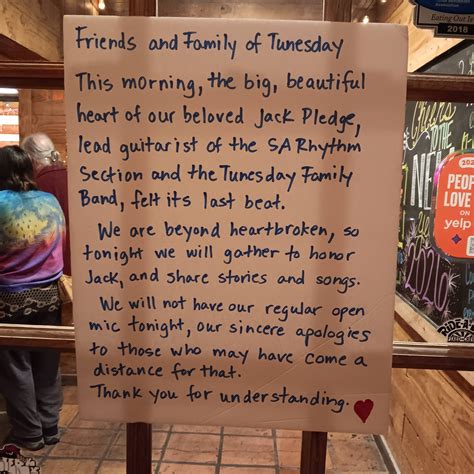 Friends and Family of Tunesday
This morning, the big, beautiful
heart of our beloved Jack Pledge,
lead guitarist of the SA Rhythm
Section and the Tunesday Family
Band, felt its last beat.
We are beyond heartbroken, so
tonight we will gather to honor
Jack, and share stories and songs.
We will not have our regular open
mic tonight, our sincere apologies
to those who may have come a
distance for that.
Thank you for understanding.
Eating Out
2018
Cheers
to
THE
NEW
2020
202
PEOP
LOVE
ON
yelp